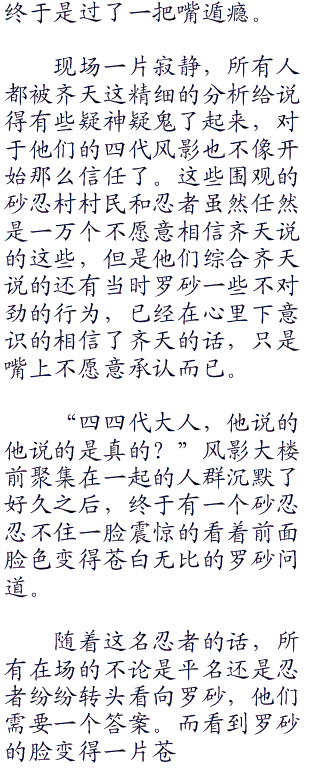 终于是过了一把嘴遁瘾。
现场一片寂静，所有人
都被齐天这精细的分析给说
得有些疑神疑鬼了起来，对
于他们的四代风影也不像开
始那么信任了。这些围观的
砂忍村村民和忍者虽然任然
是一万个不愿意相信齐天说
的这些，但是他们综合齐天
说的还有当时罗砂一些不对
劲的行为，已经在心里下意
识的相信了齐天的话，只是
嘴上不愿意承认而已。
“四四代大人，他说的
他说的是真的？”风影大楼
前聚集在一起的人群沉默了
好久之后，终于有一个砂忍
忍不住一脸震惊的看着前面
脸色变得苍白无比的罗砂问
道。
随着这名忍者的话，所
有在场的不论是平名还是忍
者纷纷转头看向罗砂，他们
需要一个答案。而看到罗砂
的脸变得一片苍